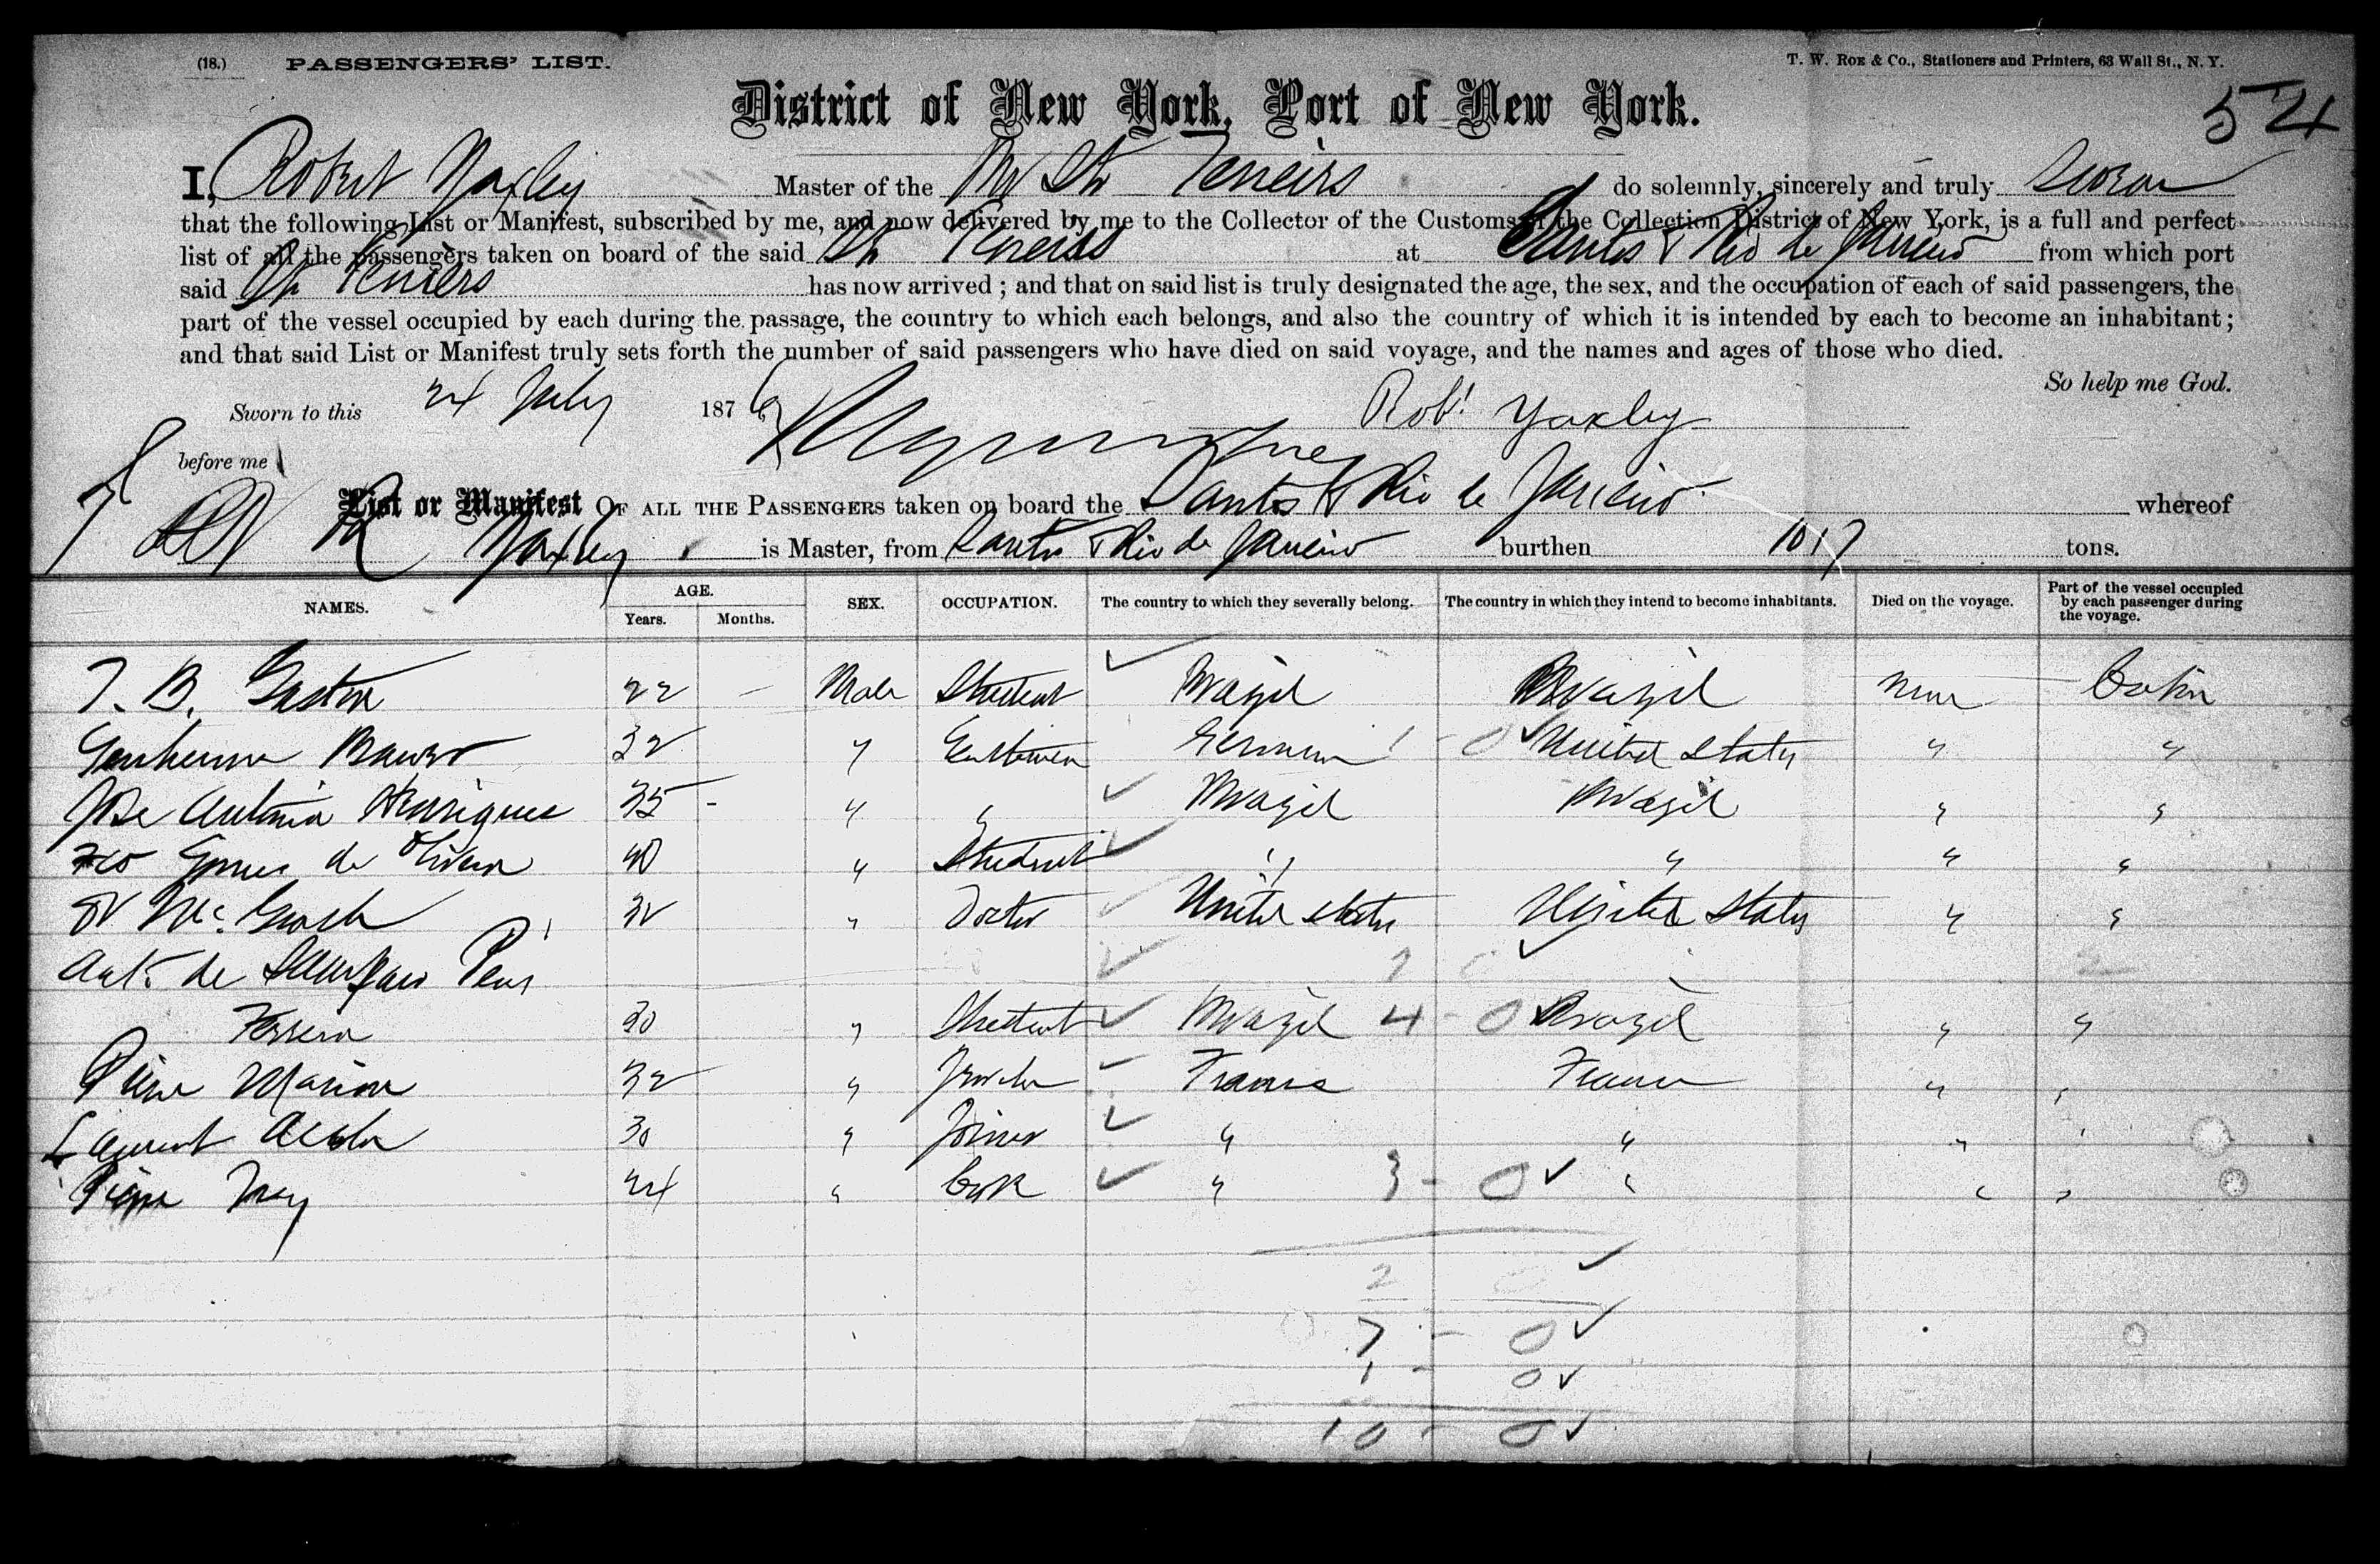 (18.) PASSENGERS' LIST. T. W. ROE & CO., Stationers and Printers, 63 Wall St., N. Y.
54
District of New York, Port of New York.
I, Robert Yaxley Master of the Br Str Teneirs do solemnly, sincerely and truly swear
that the following List or Manifest, subscribed by me, and now delivered by me to the Collector of the Customs of the Collection District of New York, is a full and perfect
list of all the passengers taken on board of the said Str Teneirs at Santos & Rio de Janeiro from which port
said Str Teniers has now arrived ; and that on said list is truly designated the age, the sex, and the occupation of each of said passengers, the
part of the vessel occupied by each during the passage, the country to which each belongs, and also the country of which it is intended by each to become an inhabitant ;
and that said List or Manifest truly sets forth the number of said passengers who have died on said voyage, and the names and ages of those who died.
So help me God.
Sworn to this 24 July 1876 Robt Yaxley
before me
List or Manifest OF ALL THE PASSENGERS taken on board the Santos & Rio de Janeiro whereof
R Yaxley is Master, from Santos & Rio de Janeiro burthen 1017 tons.
NAMES. AGE. Years. Months. SEX. OCCUPATION. The country to which they severally belong. The country in which they intend to become inhabitants. Died on the voyage. Part of the vessel occupied by each passenger during the voyage.
T. B. Gaston 22 — Male Student Brazil Brazil None Cabin
32 " Gentleman German 1 - 0 United States " "
Jose Antonio Henriques 35 - " " Brazil Brazil " "
Gomes de Olivera 40 " Student " " " "
32 " Doctor United States United States " "
Ant. de
Ferrera 20 " Student Brazil 4 - 0 Brazil " "
Pierre Marion 32 " Jeweler France France " "
Laurent 30 " Joiner " " " "
Pierre 24 " Cook " 3 - 0 " " "
2
7 - 0
1 - 0
10 - 0